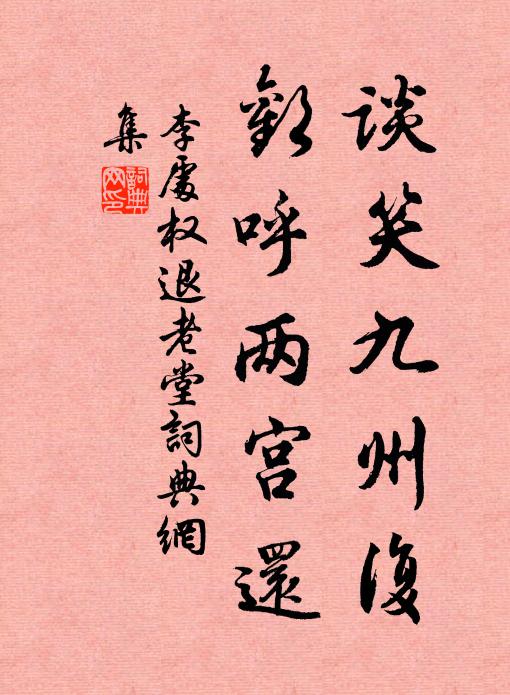 谈笑九州復
歡呼两宫還
李處权退老堂詞典網
集
詞典網印